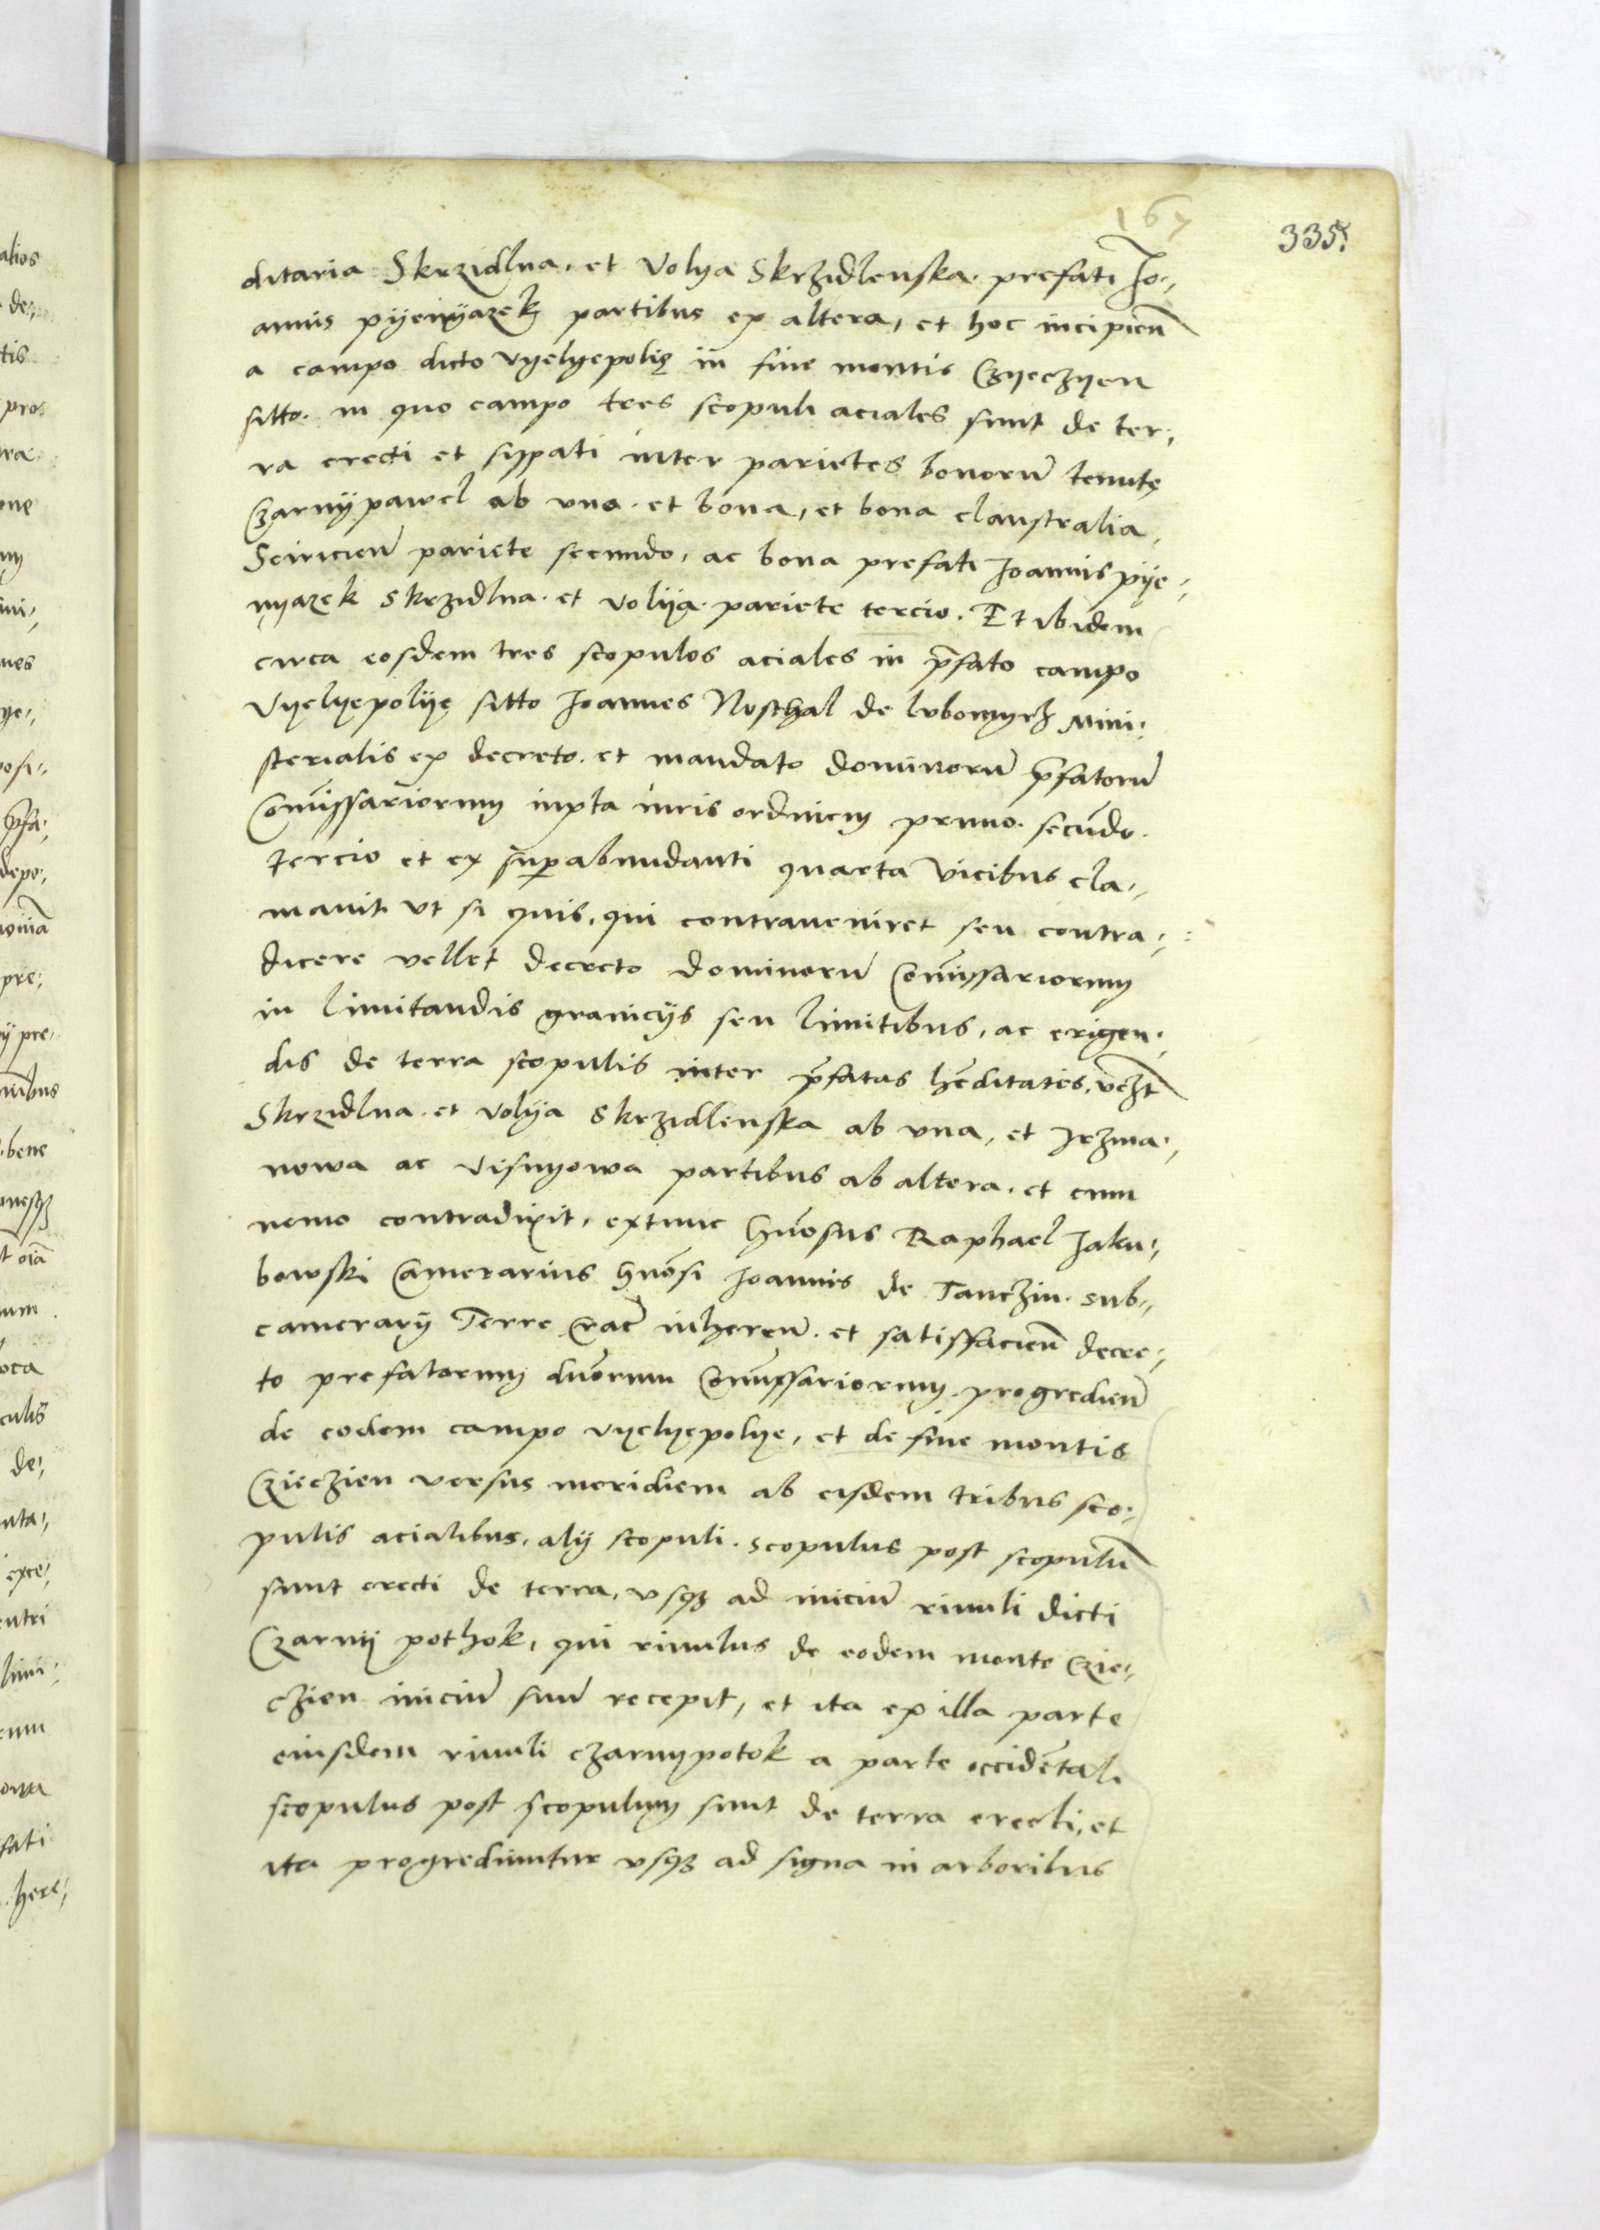 167
335
ditaria Skrzidlna, et Volya Skrzidlenska prefati Jo-
annis pyenyazek partibus ex altera, et hoc incipien̄
a campo dicto vyelyepolię in fine montis Czyeczyen
sitto. in quo campo tres scopuli aciales sunt de ter,
ra erecti et sippati inter parietes bonorū tenutę
Czarnypawel ab vna et bona, et bona claustralia,
Scircien̄ pariete secundo, ac bona prefati Joannis pye-
nyazek Skrzidlna et Volya pariete tercio. Et ibidem
circa eosdem tres scopulos aciales in p̄fato campo
Vyelyepolye sitto Joannes Noschal de lubomyrz Mini-
sterialis ex decreto et mandato dominorū p̄fatorū
Com̄issariorum iuxta iuris ordinem primo. secūdo.
tercio et ex sup̱abundanti quarta vicibus cla-
mavit vt si quis, qui contraveniret seu contra-
dicere vellet decreto dominorū Com̄issariorum
in limitandis granicys seu limitibus, ac erigen-
dis de terra scopulis inter p̄fatas hēditates, vczt̄
Skrzidlna et Volya Skrzidlenska ab vna, et Jrzma-
nowa ac Visnyowa partibus ab altera. et cum
nemo contradixit, extunc Gn̄osus Raphael Jaku-
bowski Camerarius Gn̄osi Joannis de Tanczin sub-
camerarij Terre Crac̄ inheren̄. et satisfacien̄ decre-
to prefatorum dn̄orum Com̄issariorum progredien̄
de eodem campo vyelyepolye, et de fine montis
Czieczien versus meridiem ab eisdem tribus sco-
pulis acialibus, alij scopuli. scopulus post scopulū
sunt erecti de terra, vsqꝫ ad iniciū rivuli dicti
Czarny pothok, qui rivulus de eodem monte Czie-
czien iniciū suū recepit, et ita ex illa parte
eiusdem rivuli czarnypotok a parte occidētali
scopulus post scopulum sunt de terra erecti, et
ita progrediuntur vsqꝫ ad signa in arboribus